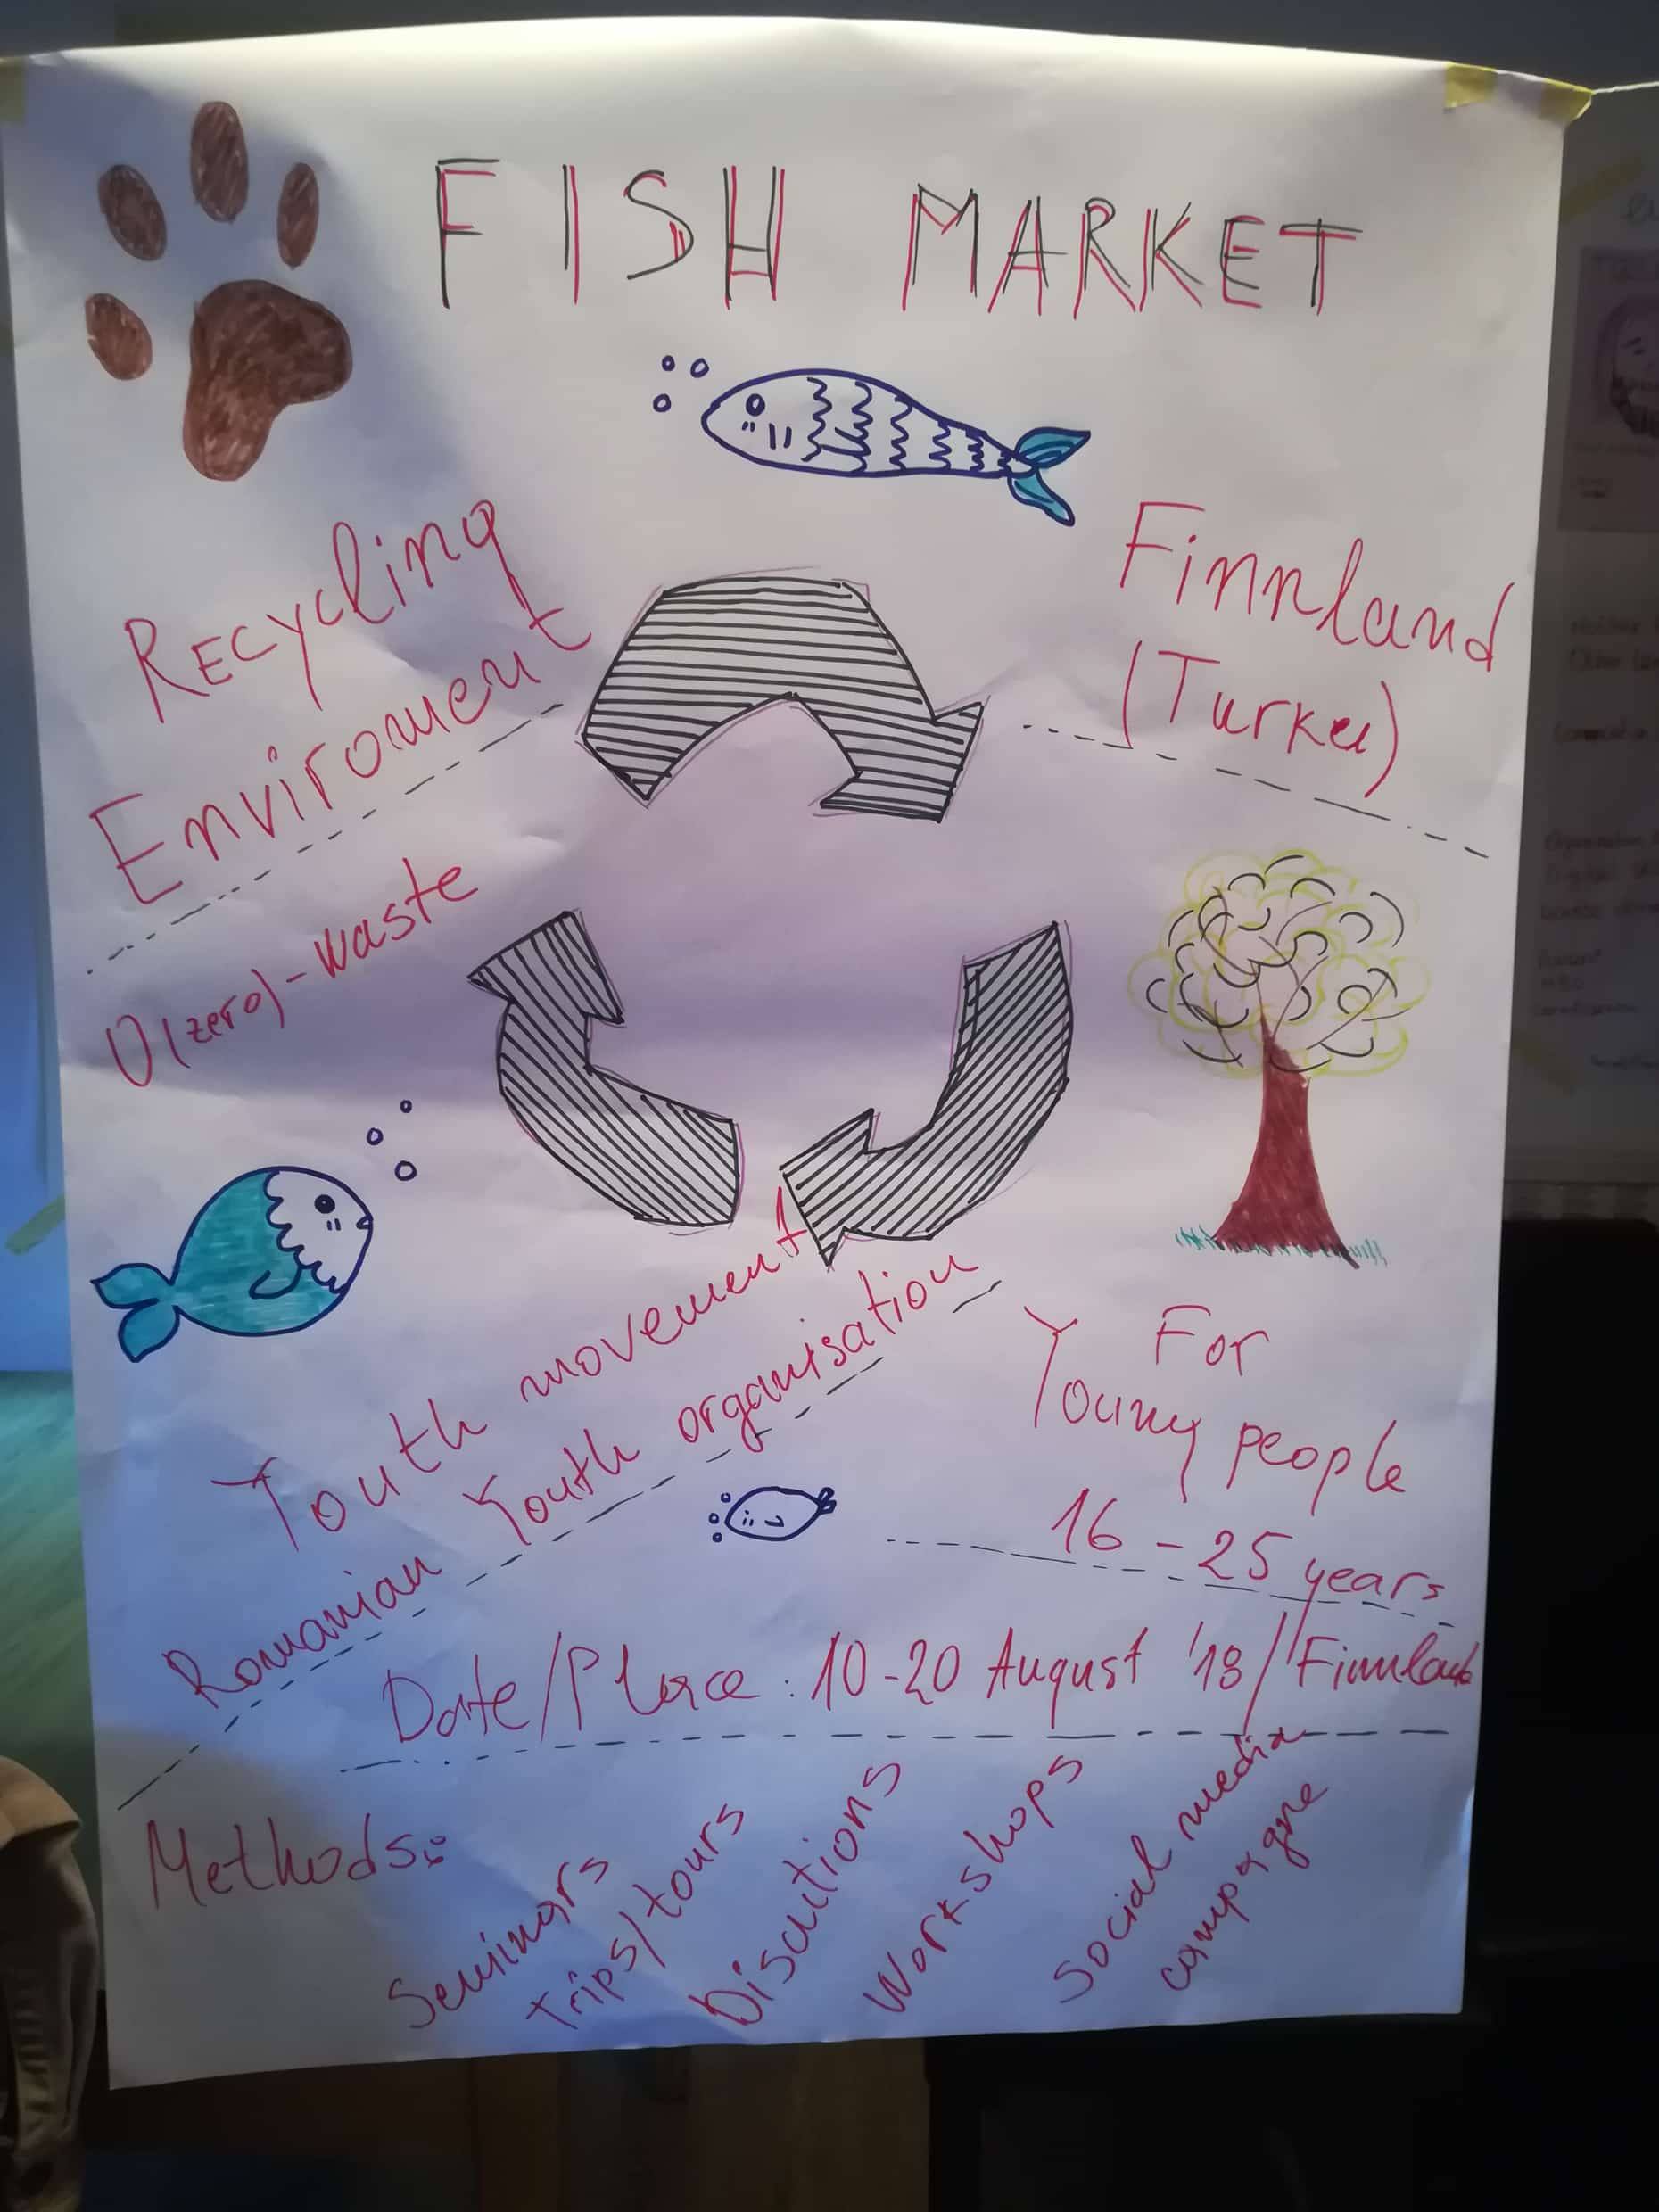 FISH MARKET
Recycling
Enviroment
0(zero)-waste
Finnland
(Turku)
Youth movement
Romanian Youth organisation
For
Young people
16-25 years
Date/Place: 10-20 August '18/Finnland
Methods:
Seminars
trips/tours
Discutions
Workshops
Social media
campagne